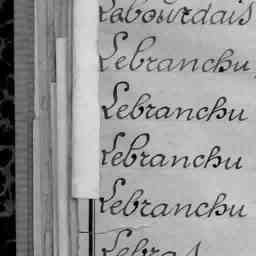 Labourdais
Lebranchu
Lebranchu
Lebranchu
Lebranchu
Lebras